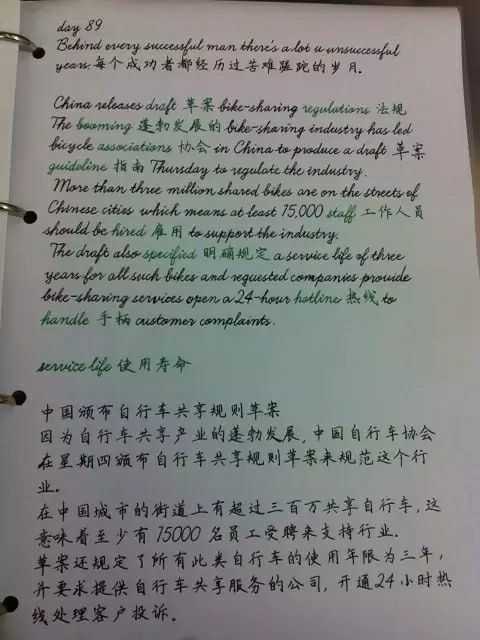 day 89
Behind every successful man there's a lot u unsuccessful
years. 每个成功者都经历过苦难蹉跎的岁月。
China releases draft 草案 bike-sharing regulations 法规
The booming 蓬勃发展的 bike-sharing industry has led
bicycle associations 协会 in China to produce a draft 草案
guideline 指南 Thursday to regulate the industry.
More than three million shared bikes are on the streets of
Chinese cities which means at least 15,000 staff 工作人员
should be hired 雇用 to support the industry.
The draft also specified 明确规定 a service life of three
years for all such bikes and requested companies provide
bike-sharing services open a 24-hour hotline 热线 to
handle 手柄 customer complaints.
service life 使用寿命
中国颁布自行车共享规则草案
因为自行车共享产业的蓬勃发展,中国自行车协会
在星期四颁布自行车共享规则草案来规范这个行
业。
在中国城市的街道上有超过三百万共享自行车,这
意味着至少有 15000 名员工受聘来支持行业.
草案还规定了所有此类自行车的使用年限为三年,
并要求提供自行车共享服务的公司,开通24小时热
线处理客户投诉。